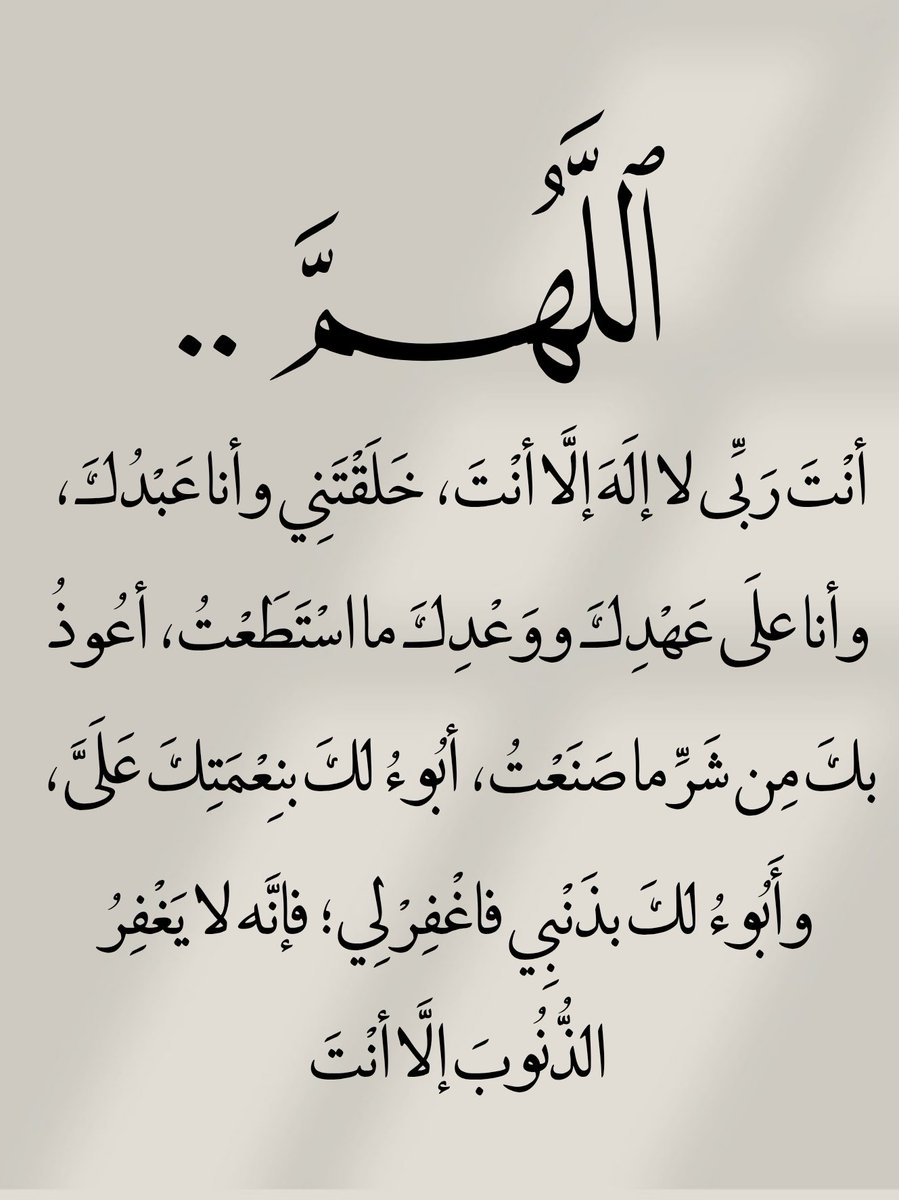 ٱللَّهُمَّ ..
أنْتَ رَبِّى لا إلَهَ إلَّا أنْتَ، خَلَقْتَنِي وأنا عَبْدُكَ،
وأنا علَى عَهْدِكَ ووَعْدِكَ ما اسْتَطَعْتُ، أعُوذُ
بكَ مِن شَرِّ ما صَنَعْتُ، أبُوءُ لكَ بنِعْمَتِكَ عَلَىَّ،
وأَبُوءُ لكَ بذَنْبِي فاغْفِرْ لِي؛ فإنَّه لا يَغْفِرُ
الذُّنُوبَ إلَّا أنْتَ